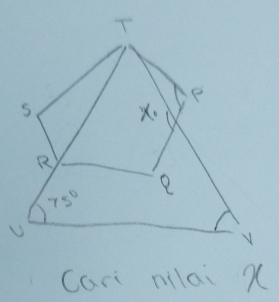 T
S
P
X°
R
Q
75°
U
V
Cari nilai X